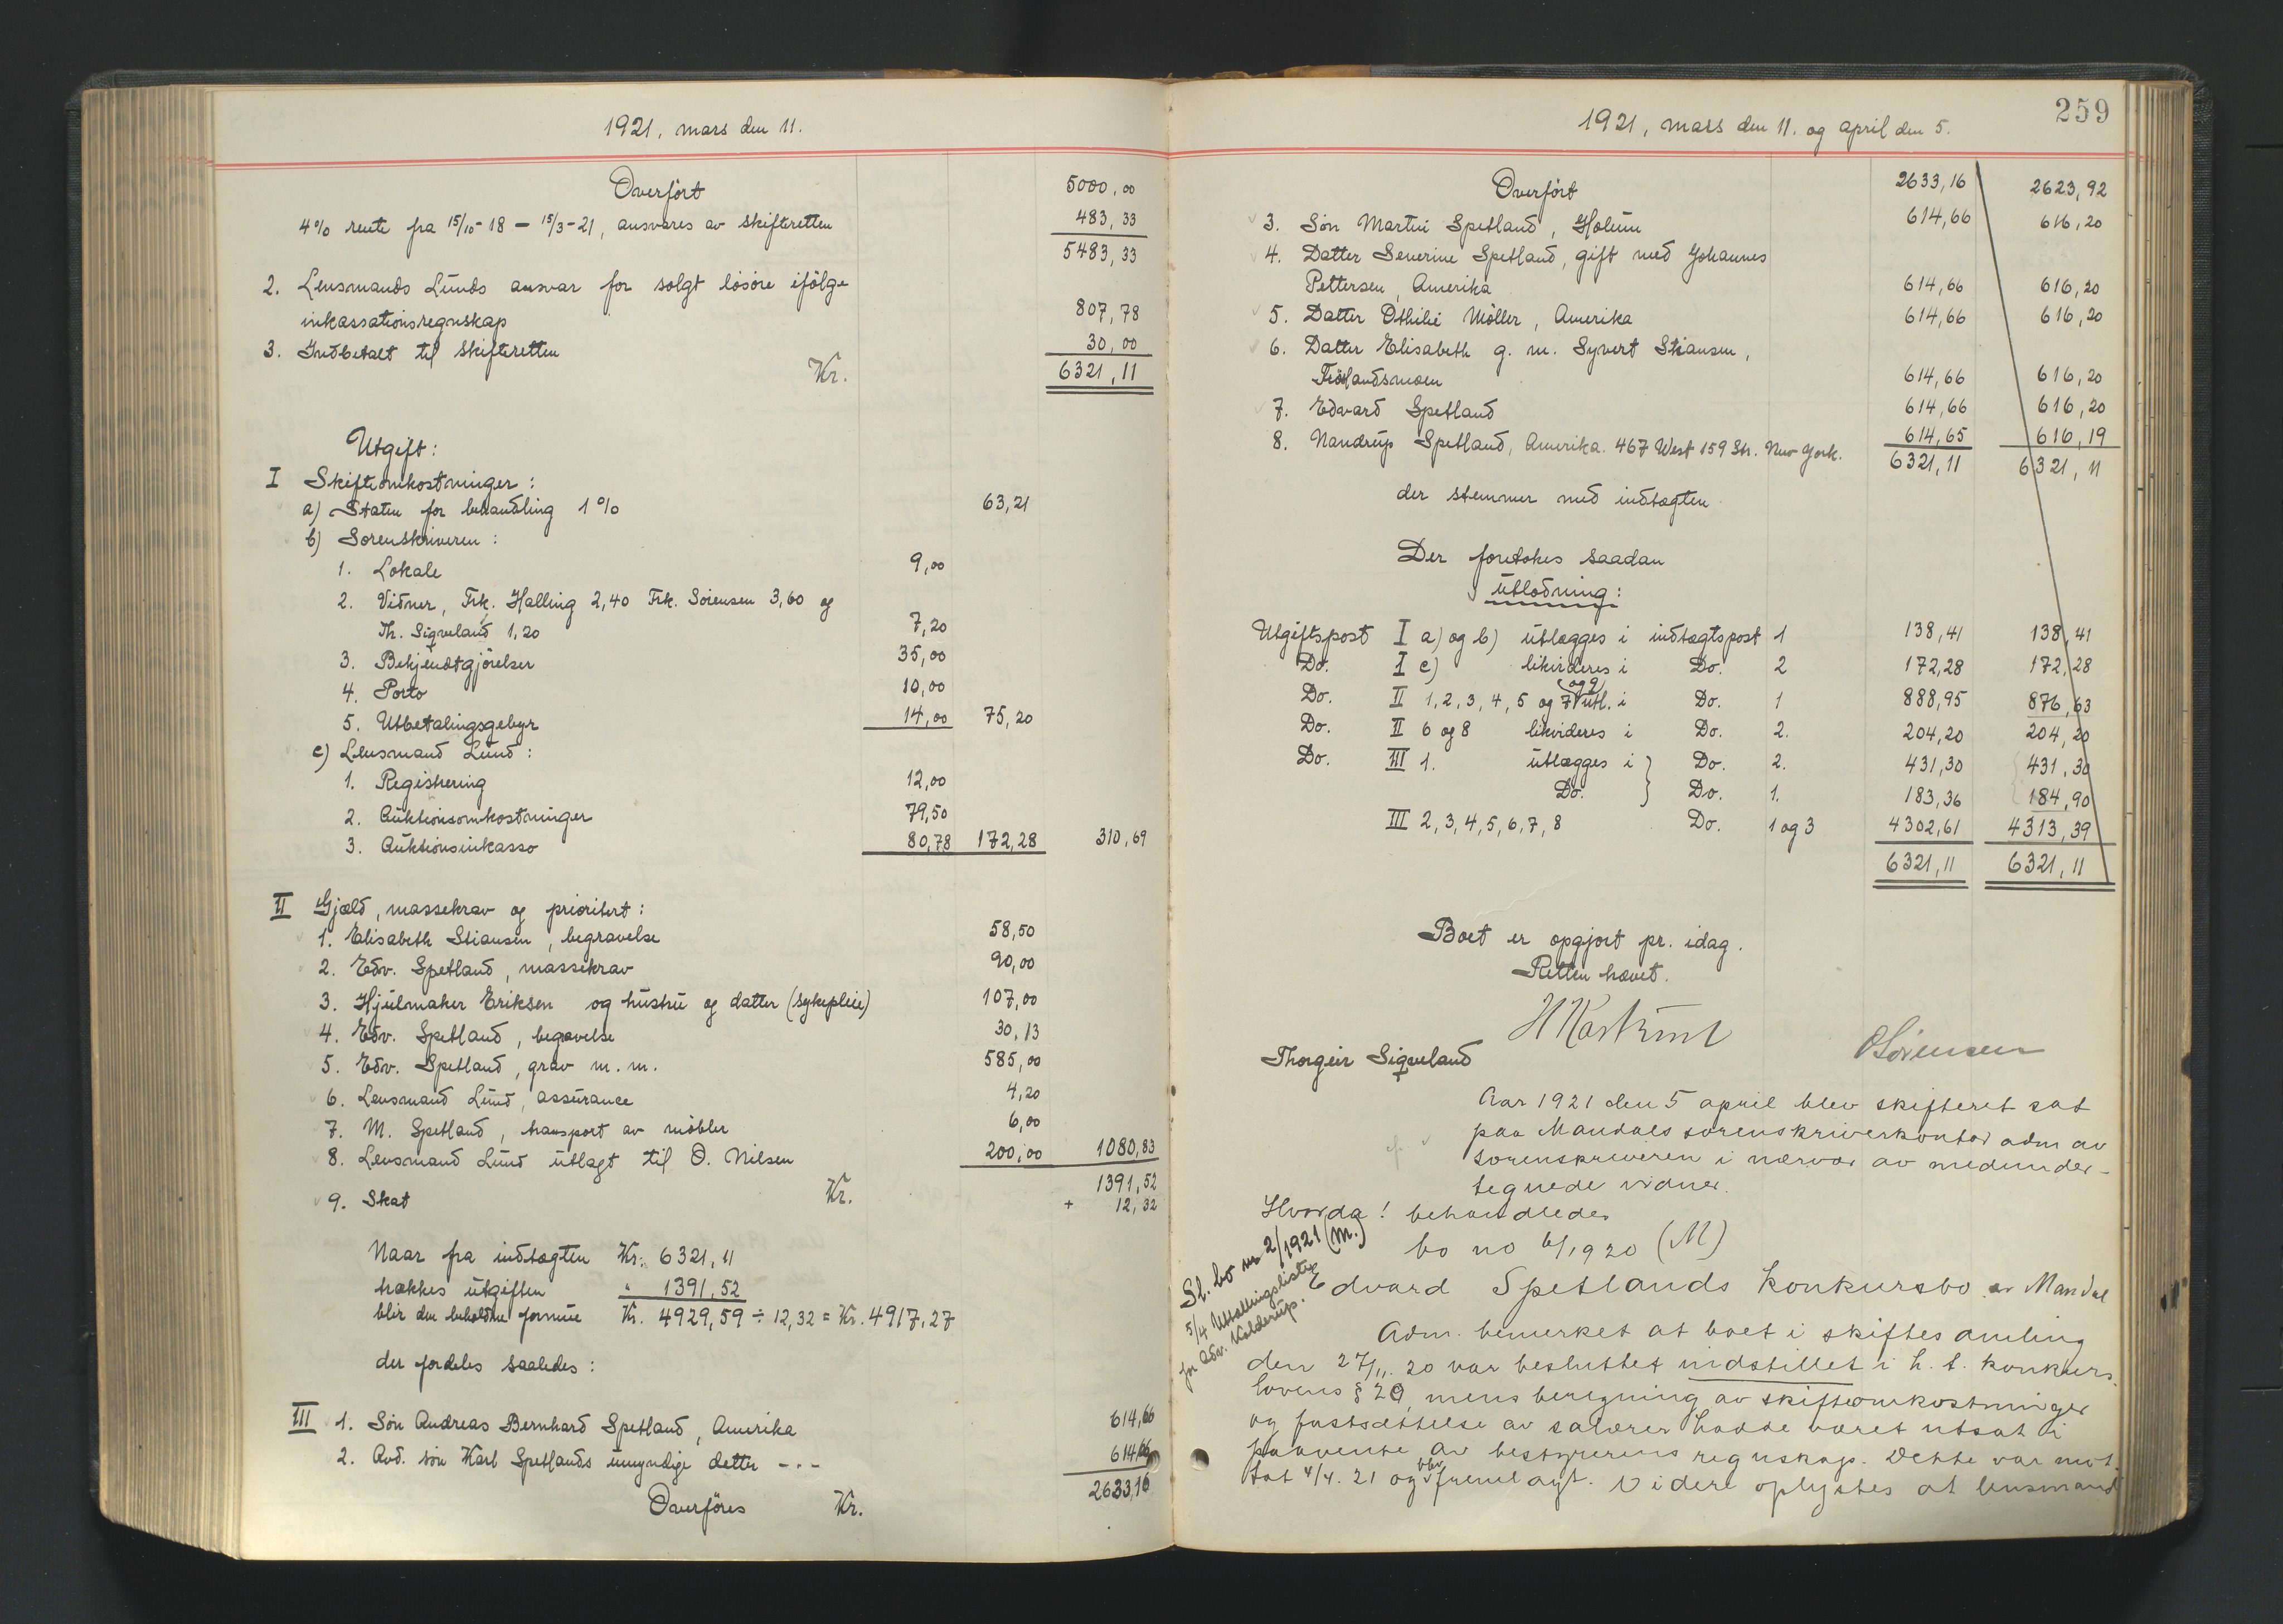 1921, mars den 11.
Overført 5000,00
4% rente fra 15/10-18 – 15/3-21, ansvares av skifteretten 483,33
5483,33
2. Lensmands Lunds ansvar for solgt løsøre ifølge
inkassationsregnskap 807,78
3. Indbetalt til skifteretten 30,00
Kr. 6321,11
Utgift:
I Skifteomkostninger:
a) Staten for behandling 1% 63,21
b) Sorenskriveren:
1. Lokale 9,00
2. Vidner, Frk. Halling 2,40 Frk. Sørensen 3,60 og
Th. Sigveland 1,20 7,20
3. Bekjendtgjørelser 35,00
4. Porto 10,00
5. Utbetalingsgebyr 14,00 75,20
c) Lensmand Lund:
1. Registrering 12,00
2. Auktionsomkostninger 79,50
3. Auktionsinkasso 80,78 172,28 310,69
II Gjæld, massekrav og prioritert:
1. Elisabeth Stiansen, begravelse 58,50
2. Edv. Spetland, massekrav 90,00
3. Hjulmaker Eriksen og hustru og datter (sykepleie) 107,00
4. Edv. Spetland, begravelse 30,13
5. Edv. Spetland, grav m. m. 585,00
6. Lensmand Lund, assurance 4,20
7. M. Spetland, transport av møbler 6,00
8. Lensmand Lund utlagt til O. Nilsen 200,00 1080,83
Kr. 1391,52
9. Skat + 12,32
Naar fra indtægten Kr. 6321,11
trækkes utgiften " 1391,52
blir den beholdne formue Kr. 4929,59 ÷ 12,32 = Kr. 4917,27
der fordeles saaledes:
III 1. Søn Andreas Bernhard Spetland, Amerika 614,66
2. Avd. søn Karl Spetlands umyndige datter -.- 614,66
Overføres Kr. 2633,16
259
1921, mars den 11. og april den 5.
Overført 2633,16 2623,92
3. Søn Martin Spetland, Holum 614,66 616,20
4. Datter Severine Spetland, gift med Johannes
Pettersen, Amerika 614,66 616,20
5. Datter Othilie Møller, Amerika 614,66 616,20
6. Datter Elisabeth g. m. Syvert Stiansen,
614,66 616,20
7. Edvard Spetland 614,66 616,20
8. Nandrup Spetland, Amerika. 467 West 159 Str. New York. 614,65 616,19
6321,11 6321,11
der stemmer med indtægten
Der foretokes saadan
utlodning:
Utgiftspost I a) og b) utlægges i indtægtspost 1 138,41 138,41
Do. I c) likvideres i Do. 2 172,28 172,28
Do. II 1,2,3,4,5 og 7 og 9 utl. i Do. 1 888,95 876,63
Do. II 6 og 8 likvideres i Do. 2. 204,20 204,20
Do. III 1. utlægges i Do. 2. 431,30 431,30
Do. Do. 1. 183,36 184,90
III 2,3,4,5,6,7,8 Do. 1 og 3 4302,61 4313,39
6321,11 6321,11
Boet er opgjort pr. idag.
Retten hævet.
Thorgeir Sigveland
OSørensen
Aar 1921 den 5 april blev skifteret sat
paa Mandals sorenskriverkontor adm av
sorenskriveren i nærvær av medunder-
tegnede vidner.
Hvorda! behandledes
bo no 6/1920 (M)
Sl. bo nr 2/1921 (M.)
5/4 Utballingsliste
for Adv. Kolderup.
Edvard Spetlands konkursbo av Mandal
Adm. bemerket at boet i skiftesamling
den 27/11.20 var besluttet indstillet i h. t. konkurs-
lovens § 20, mens beregning av skifteomkostninger
og fastsættelse av salærer hadde været utsat i
paavente av bestyrerens regnskap. Dette var mot-
tat 4/4. 21 og blev fremlagt. Videre oplystes at lensmand